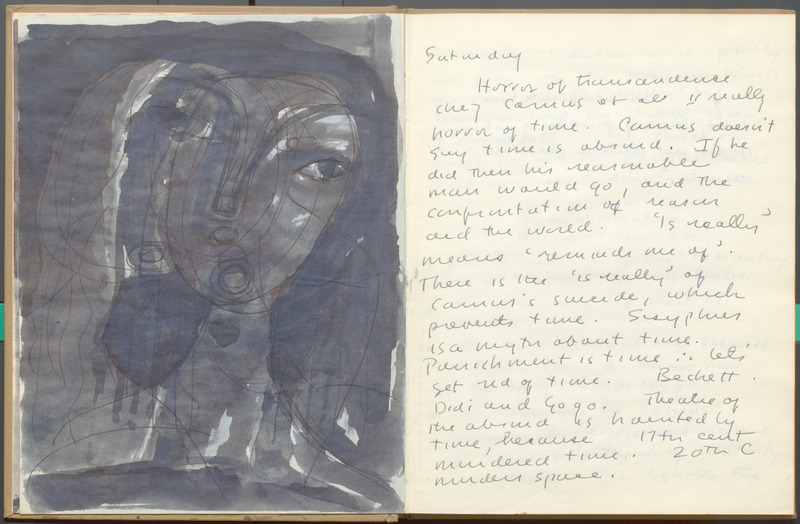 Saturday
Horror of transcendence
chez Camus et al is really
horror of time. Camus doesn't
say time is absurd. If he
did then his reasonable
man would go, and the
confrontation of reason
and the world. 'Is really'
means 'reminds me of'.
There is the 'is really' of
Camus's suicide, which
prevents time. Sisyphus
is a myth about time.
Punishment is time ∴ let's
get rid of time. Beckett.
Didi and Gogo. Theatre of
the absurd is haunted by
time, because 17th cent
murdered time. 20th C
murders space.